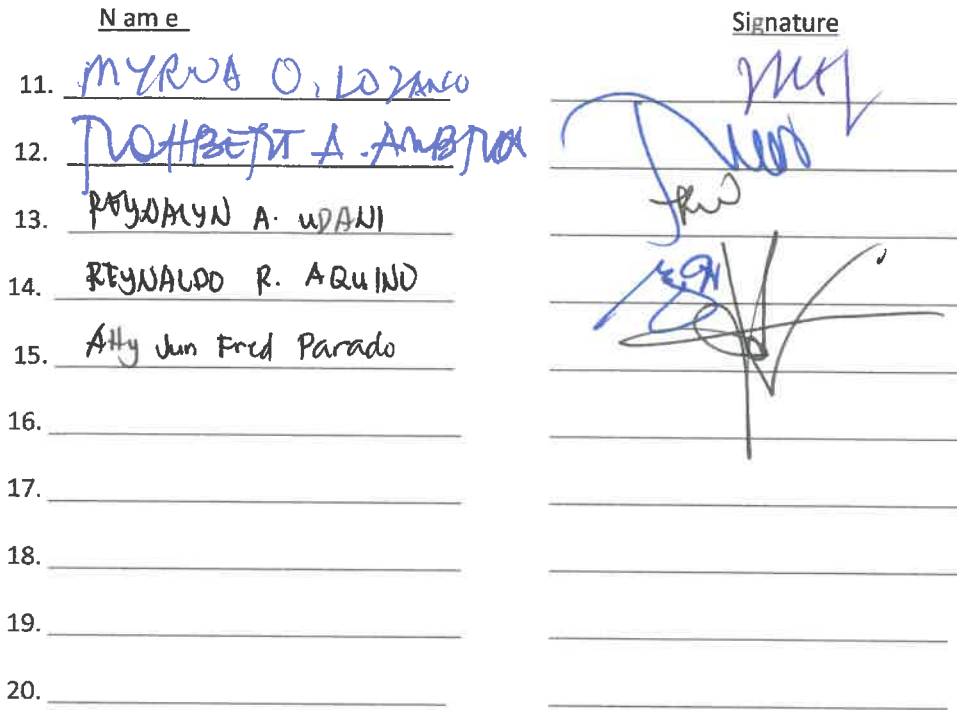 Name Signature
11. MYRNA O. LOZANO
12. ROHBERT A. AMBROS
13. RAYNALYN A. UDANI
14. REYNALDO R. AQUINO
15. Atty Jun Fred Parado
16.
17.
18.
19.
20.